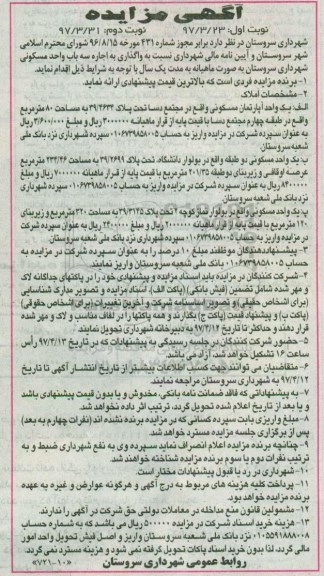 آگهی مزایده
نوبت اول: ۹۷/۳/۲۳ نوبت دوم: ۹۷/۳/۳۱
شهرداری سروستان در نظر دارد برابر مجوز شماره ۴۳۱ مورخه ۹۶/۸/۱۵ شورای محترم اسلامی
شهر سروستان و آیین نامه مالی شهرداری نسبت به واگذاری به اجاره سه باب واحد مسکونی
شهرداری سروستان به صورت ماهیانه به مدت یک سال با توجه به شرایط ذیل اقدام نماید.
۱- برنده مزایده فردی است که بالاترین قیمت پیشنهادی ارائه نماید.
۲- مشخصات املاک
الف: یک واحد آپارتمان مسکونی واقع در مجتمع دسا تحت پلاک ۳۹/۲۶۳۳ به مساحت ۸۰ مترمربع
واقع در طبقه چهارم مجتمع دسا با قیمت پایه از قرار ماهیانه ۳۰۰۰۰۰۰ ریال و مبلغ ۳/۶۰۰/۰۰۰ ریال
به عنوان سپرده شرکت در مزایده واریز به حساب ۰۱۰۶۷۳۹۸۵۸۰۰۵ سپرده شهرداری نزد بانک ملی
شعبه سروستان.
ب: یک واحد مسکونی دو طبقه واقع در بولوار دانشگاه تحت پلاک ۳۹/۲۶۹۹ به مساحت ۲۳۳/۴۶ مترمربع
عرصه اوقافی و زیربنای دو طبقه ۲۰۱/۳۵ مترمربع با قیمت پایه از قرار ماهیانه ۷۰۰۰۰۰۰ ریال و مبلغ
۸۴۰۰۰۰۰ ریال به عنوان سپرده شرکت در مزایده واریز به حساب ۰۱۰۶۷۳۹۸۵۸۰۰۵ سپرده شهرداری
نزد بانک ملی شعبه سروستان.
پ: یک واحد مسکونی واقع در بولوار نماز کوچه ۲ تحت پلاک ۳۹/۳۱۲۵ به مساحت ۳۲۰ مترمربع و زیربنای
۱۲۰ مترمربع با قیمت پایه از قرار ماهیانه ۲۰۰۰۰۰۰ ریال و مبلغ ۲۴۰۰۰۰۰ ریال به عنوان سپرده شرکت
در مزایده واریز به حساب ۰۱۰۶۷۳۹۸۵۸۰۰۵ سپرده شهرداری نزد بانک ملی شعبه سروستان.
۳- پیشنهاددهندگان موظفند مبلغ ۱۰ درصد را به عنوان سپرده شرکت در مزایده به
حساب ۰۱۰۶۷۳۹۸۵۸۰۰۵ بانک ملی شعبه سروستان واریز نمایند.
۴- شرکت کنندگان در مزایده باید اسناد مزایده و پیشنهادی خود را در پاکتهای جداگانه لاک
و مهر شده شامل تضمین (فیش بانکی) (پاکت الف)، اسناد مزایده و تصویر مدارک شناسایی
(برای اشخاص حقیقی) و تصویر اساسنامه شرکت و آخرین تغییرات (برای اشخاص حقوقی)
(پاکت ب) و پیشنهاد قیمت (پاکت ج) بگذارند و همه پاکتها را در لفاف مناسب و لاک و مهر شده
قرار دهند و حداکثر تا تاریخ ۹۷/۴/۱۲ به دبیرخانه شهرداری تحویل نمایند.
۵- حضور شرکت کنندگان در جلسه رسیدگی به پیشنهادات که در تاریخ ۹۷/۴/۱۳ رأس
ساعت ۱۶ تشکیل خواهد شد، آزاد می باشد.
۶- متقاضیان می توانند جهت کسب اطلاعات بیشتر از تاریخ انتشار آگهی تا تاریخ
۹۷/۴/۱۲ به شهرداری سروستان مراجعه نمایند.
۷- به پیشنهاداتی که فاقد ضمانت نامه بانکی، مخدوش و یا بدون قیمت پیشنهادی باشد
و یا بعد از تاریخ اعلام شده تحویل گردد، ترتیب اثر داده نخواهد شد.
۸- مبلغ واریزی بابت سپرده کسانی که در مزایده برنده نشده اند (نفرات چهارم به بعد)
پس از برگزاری جلسه مزایده مسترد خواهد شد.
۹- چنانچه برنده مزایده اعلام انصراف نماید سپرده وی به نفع شهرداری ضبط و به
ترتیب نفرات دوم یا سوم برنده مزایده شناخته خواهند شد.
۱۰- شهرداری در رد یا قبول پیشنهادات مختار است.
۱۱- پرداخت کلیه هزینه های مربوط به درج آگهی و هرگونه عوارض و غیره به عهده
برنده مزایده خواهد بود.
۱۲- مشمولین قانون منع مداخله در معاملات دولتی حق شرکت در آگهی را ندارند.
۱۳- هزینه خرید اسناد شرکت در مزایده ۵۰۰۰۰۰ ریال می باشد که به شماره حساب
۰۱۰۵۵۹۱۸۸۸۰۰۸ نزد بانک ملی شعبه سروستان واریز و اصل فیش تحویل واحد امور
مالی گردد، لذا بدون خرید اسناد پاکات تحویل گرفته نمی شود و هزینه مسترد نمی گردد.
روابط عمومی شهرداری سروستان «۷۲۱-۱۰»